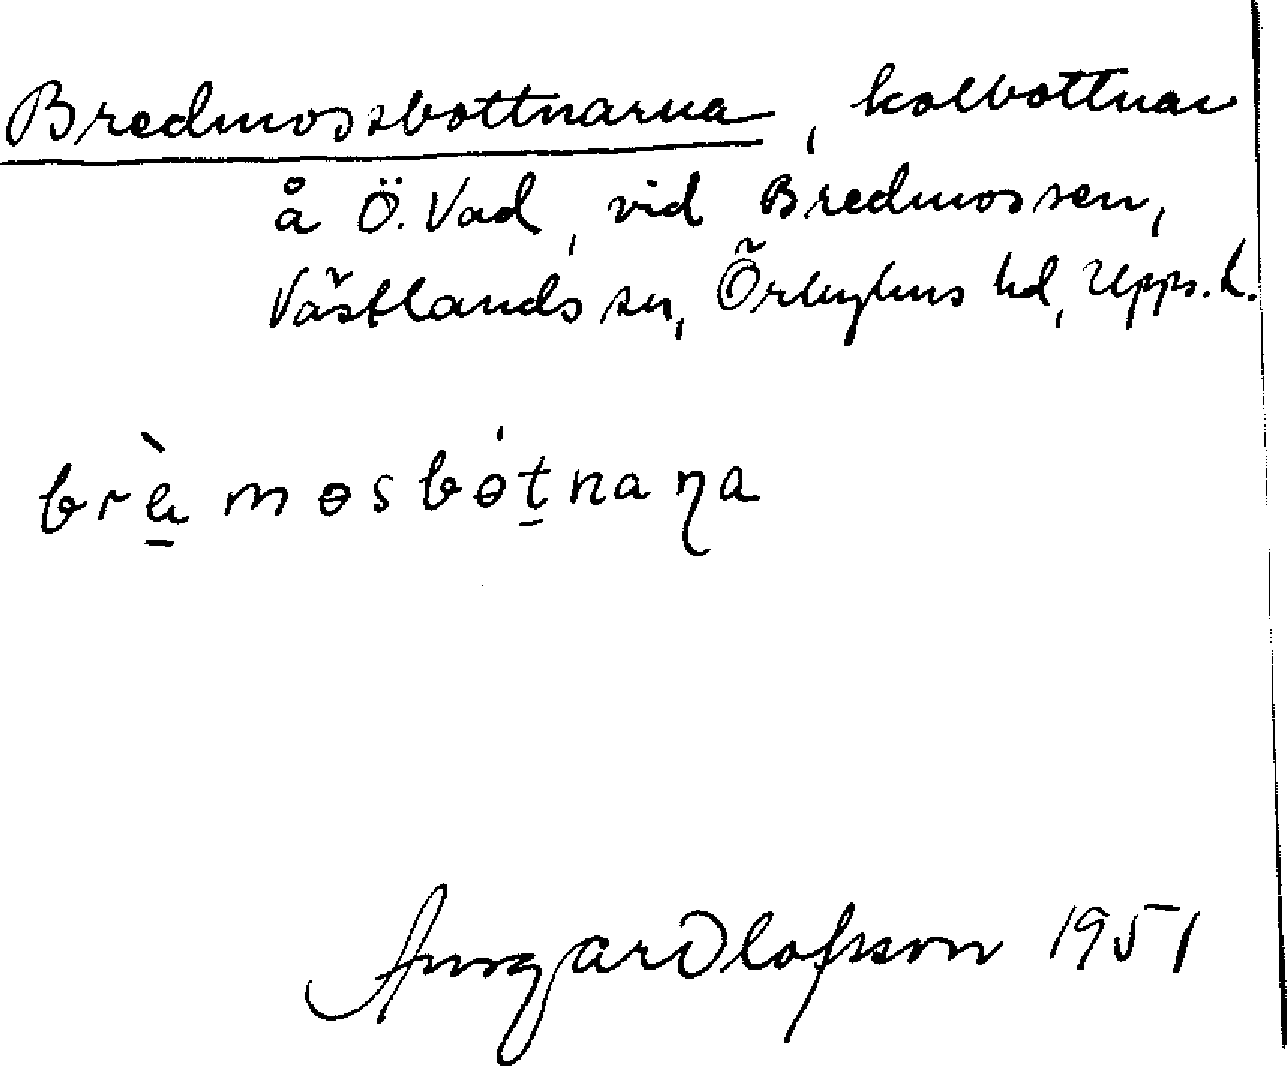 Bredmossbottnarna, kolbottnar
å Ö. Vad, vid Bredmossen,
Västlands sn, Örbyhus hd, Upps. l.
brè̱mɵsbɵ́ṯnaɳa
Ansgar Olofsson 1951